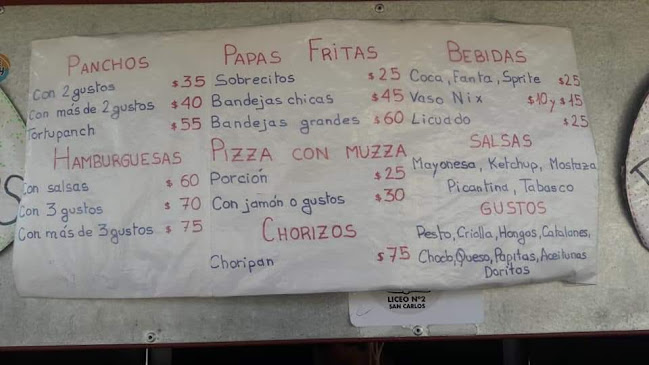 PANCHOS
Con 2 gustos $35
Con más de 2 gustos $40
Tortupanch $55
HAMBURGUESAS
Con salsas $60
Con 3 gustos $70
Con más de 3 gustos $75
PAPAS FRITAS
Sobrecitos $25
Bandejas chicas $45
Bandejas grandes $60
PIZZA CON MUZZA
Porción $25
Con jamón o gustos $30
CHORIZOS
Choripan $75
BEBIDAS
Coca, Fanta, Sprite $25
Vaso Nix $10 y $15
Licuado $25
SALSAS
Mayonesa, Ketchup, Mostaza
Picantina, Tabasco
GUSTOS
Pesto, Criolla, Hongos, Catalanes,
Choclo, Queso, Papitas, Aceitunas
Doritos
LICEO Nº2
SAN CARLOS